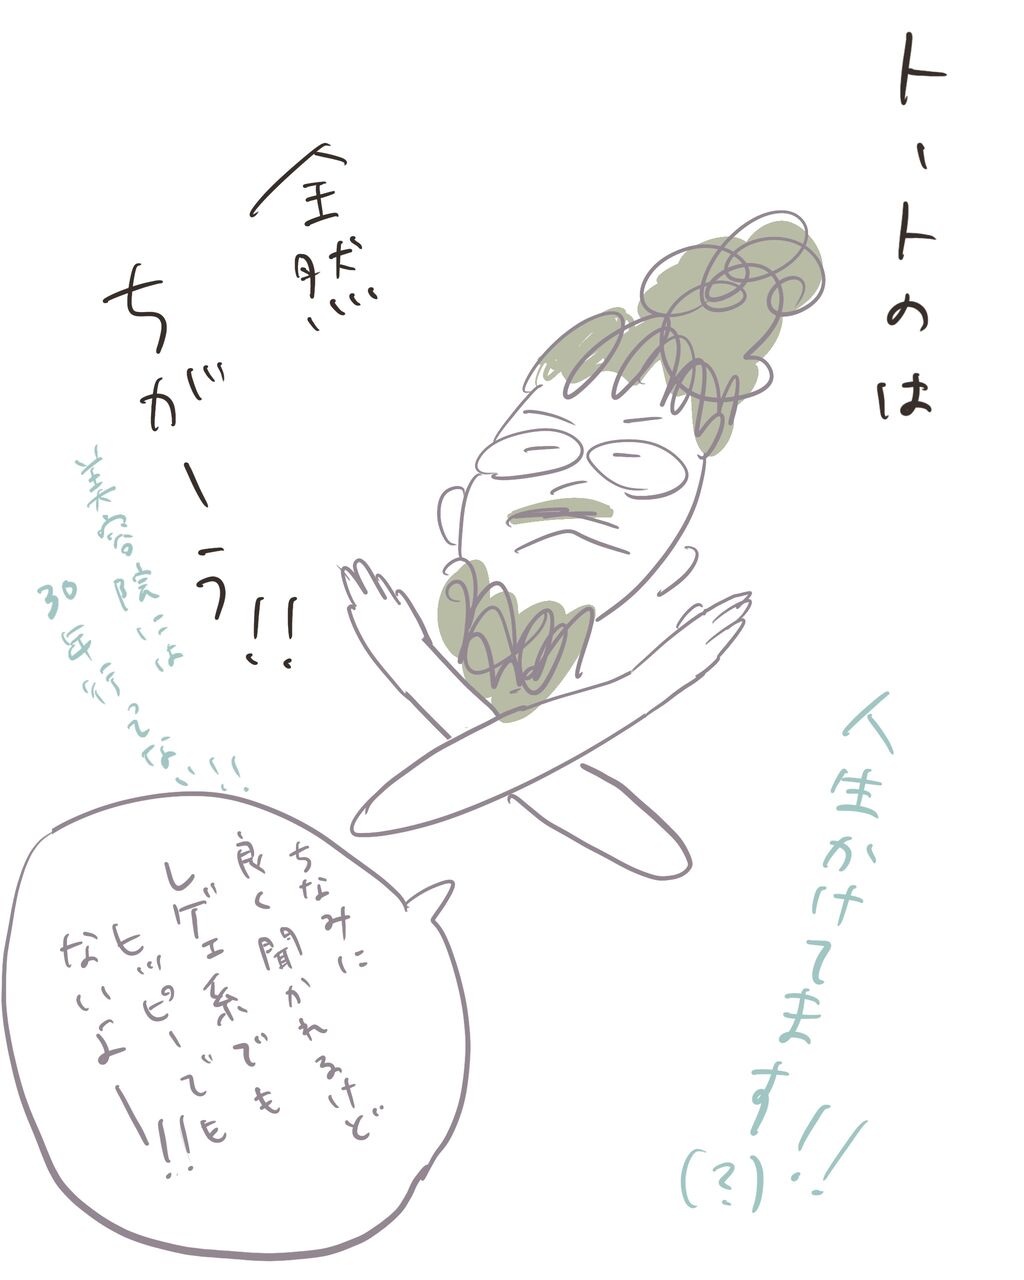 トートのは
全然
ちがーう!!
美容院には
30年行ってない!!!
人生かけてます!!
(?)
ちなみに
良く聞かれるけど
レゲエ系でも
ヒッピーでも
ないよー!!!